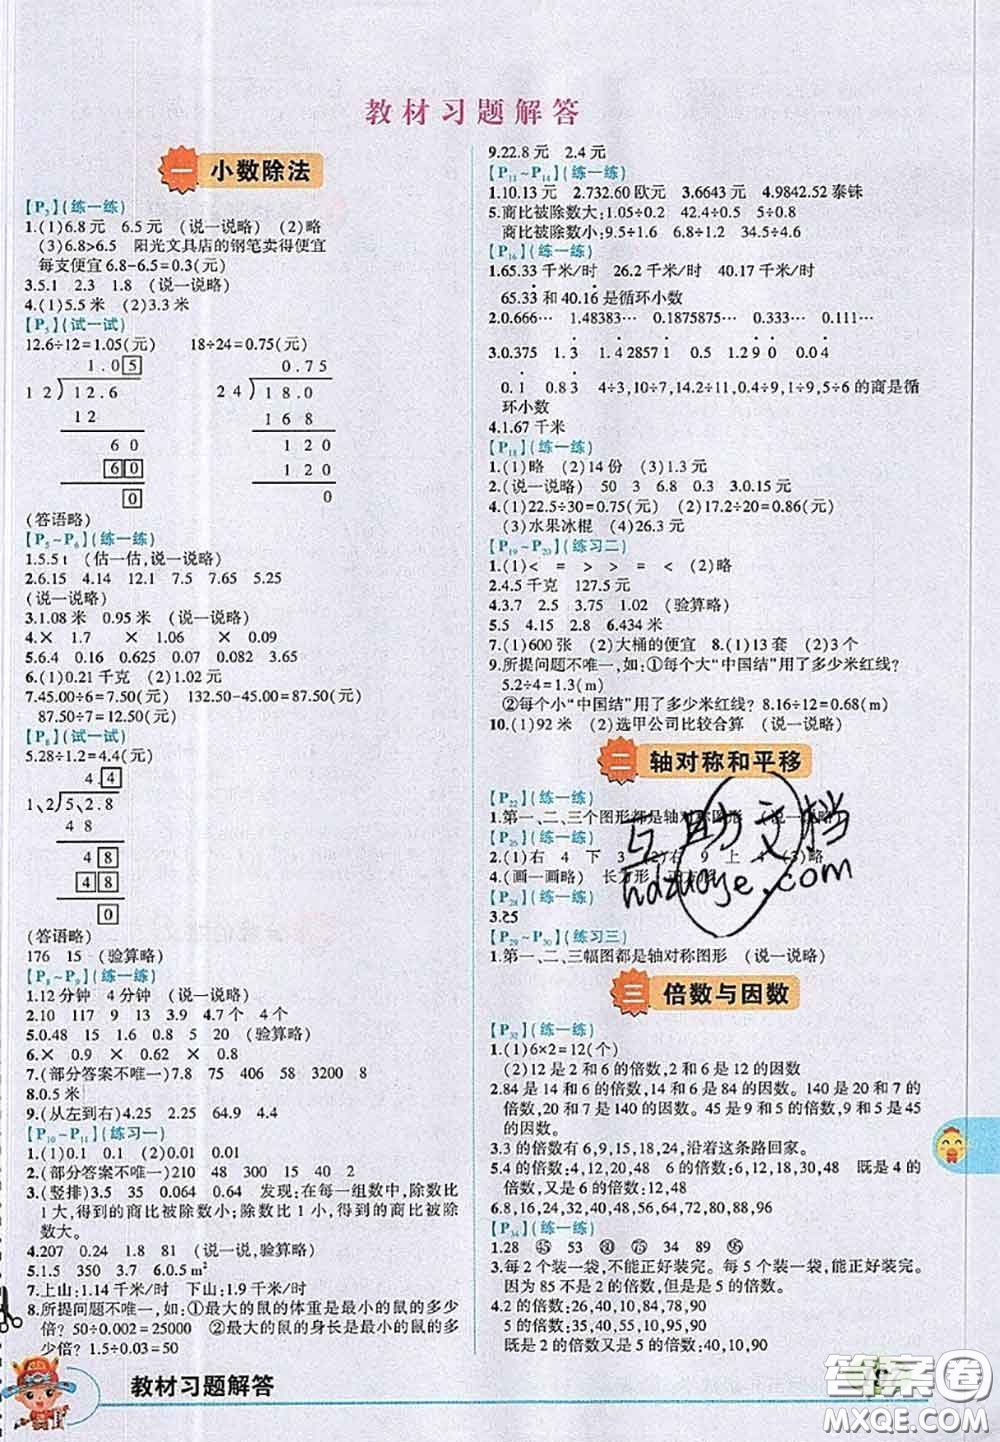 教材习题解答
一 小数除法
【P3】(练一练)
1.(1)6.8元 6.5元 (说一说略) (2)略
(3)6.8>6.5 阳光文具店的钢笔卖得便宜
每支便宜6.8-6.5=0.3(元)
3.5.1 2.3 1.8 (说一说略)
4.(1)5.5米 (2)3.3米
【P5】(试一试)
12.6÷12=1.05(元) 18÷24=0.75(元)
1.05 0.75
12)12.6 24)18.0
12 168
60 120
60 120
0 0
(答语略)
【P5~P6】(练一练)
1.5.5t (估一估,说一说略)
2.6.15 4.14 12.1 7.5 7.65 5.25
(说一说略)
3.1.08米 0.95米 (说一说略)
4.× 1.7 × 1.06 × 0.09
5.6.4 0.16 0.65 0.15 0.24
6.(1)0.21千克 (2)1.02元
7.45.00÷6=7.50(元) 132.50-45.00=87.50(元)
87.50÷7=12.50(元)
【P8】(试一试)
5.28÷1.2=4.4(元)
4.4
1.2)5.2.8
48
48
48
0
(答语略)
176 15 (验算略)
【P8~P9】(练一练)
1.12分钟 4分钟 (说一说略)
2.10 117 9 13 3.9 4.7个 4个
5.0.48 15 4.9 0.5 5 20 (验算略)
6.× 0.9 × 0.62 × 0.8
7.(部分答案不唯一)7.8 75 408 54 3200 8
8.0.5米
9.(从左到右)4.25 2.25 64.9 4.4
【P10~P11】(练习一)
1.(1)0.1 0.1 (2)0.01 0.01
2.(部分答案不唯一)210 48 300 15 40
3.(竖排)3.5 35 0.064 0.64 发现:在每一组数中,除数比
1大,得到的商比被除数小;除数比1小,得到的商比被除
数大。
4.207 0.24 1.8 81 (说一说,验算略)
5.1.5 350 3.7 6.0.5m²
7.上山:1.14千米/时 下山:1.9千米/时
8.所提问题不唯一,如:①最大的鼠的体重是最小的鼠的多少
倍? 50÷0.002=25000 ②最大的鼠的身长是最小的鼠的多
少倍? 1.5÷0.03=50
教材习题解答
9.22.8元 2.4元
【P11~P14】(练一练)
1.10.13元 2.732.60欧元 3.6643元 4.9842.52泰铢
5.商比被除数大:1.05÷0.2 42.4÷0.5 5÷0.8
商比被除数小:9.5÷1.6 6.8÷1.2 34.5÷4.6
【P16】(练一练)
1.65.33千米/时 26.2千米/时 40.17千米/时
65.33和40.16是循环小数
2.0.666… 1.48383… 0.1875875… 0.333… 0.111…
3.0.375 1.3̇ 1.4̇ 1.4̇28571̇ 0.5 1.29̇0̇ 0.04̇
0.1̇ 0.83̇ 4÷3,10÷7,14.2÷11,0.4÷9,1÷9,5÷6的商是循
环小数
4.1.67千米
【P18】(练一练)
1.(1)略 (2)14份 (3)1.3元
2.(说一说略) 50 3 6.8 3.0.15元
4.(1)22.5÷30=0.75(元) (2)17.2÷20=0.86(元)
(3)水果冰棍 (4)26.3元
【P19~P20】(练习二)
1.(1)< = > > = < (2)略
2.4.5千克 127.5元
4.3.7 2.5 3.75 1.02 (验算略)
5.5 4.15 2.8 6.434米
7.(1)600张 (2)大桶的便宜 8.(1)13套 (2)3个
9.所提问题不唯一,如:①每个大“中国结”用了多少米红线?
5.2÷4=1.3(m)
②每个小“中国结”用了多少米红线? 8.16÷12=0.68(m)
10.(1)92米 (2)选甲公司比较合算 (说一说略)
二 轴对称和平移
【P22】(练一练)
1.第一、二、三个图形都是轴对称图形 (说一说略)
【P26】(练一练)
2.(1)右 4 下 3 (2)右 9 上 4 (3)略
4.(画一画略) 长方形
【P28】(练一练)
【P29~P30】(练习三)
1.第一、二、三幅图都是轴对称图形 (说一说略)
互助文档
hdzuoye.com
三 倍数与因数
【P32】(练一练)
1.(1)6×2=12(个)
(2)12是2和6的倍数,2和6是12的因数
2.84是14和6的倍数,14和6是84的因数。140是20和7的
倍数,20和7是140的因数。45是9和5的倍数,9和5是45
的因数。
3.3的倍数有6,9,15,18,24,沿着这条路回家。
5.4的倍数:4,12,20,48 6的倍数:6,12,18,30,48 既是4的
倍数,又是6的倍数:12,48
6.8,16,24,32,40,48,56,64,72,80,88,96
【P34】(练一练)
1.28 ㊺ 53 90 75 34 88 94 89 95
3.每2个装一袋,不能正好装完。每5个装一袋,能正好装完。
因为85不是2的倍数,但是是5的倍数。
4.2的倍数:26,40,10,84,38,90
5的倍数:35,40,10,55,90
既是2的倍数又是5的倍数:40,10,90
答案圈
MXQE.COM